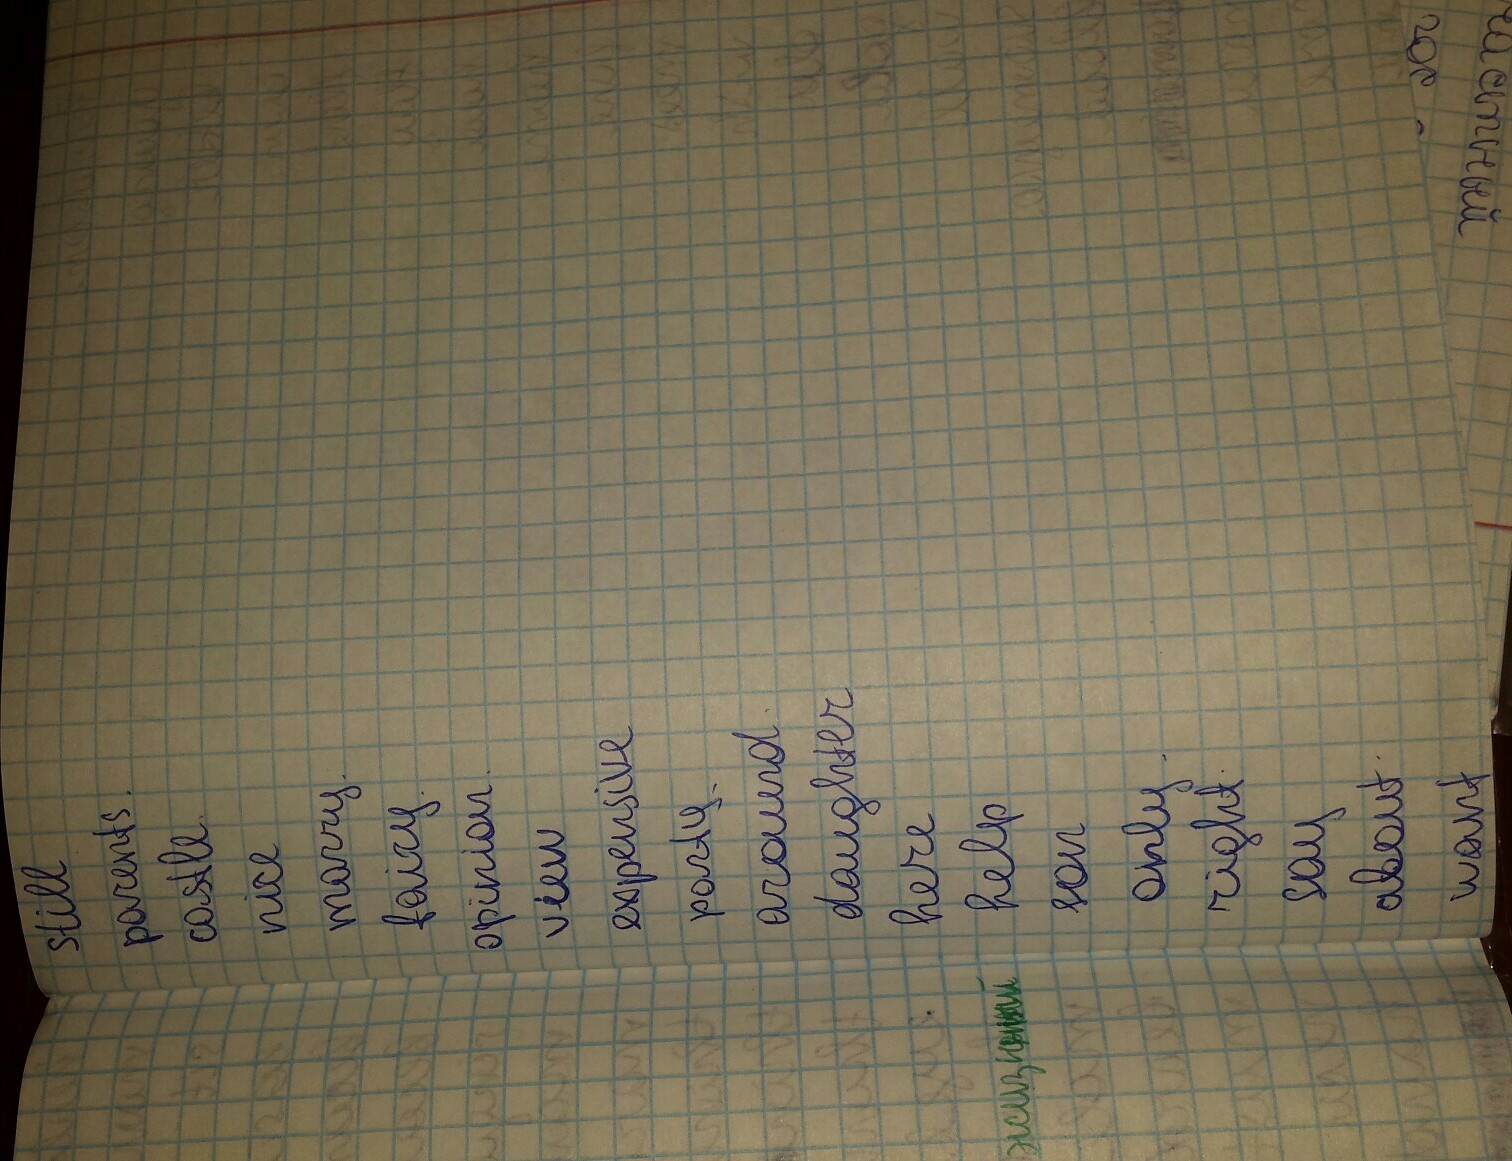 still
parents.
castle.
nice
marry.
fairy.
opinion.
view
expensive
party.
around.
daughter
here
help
son
only.
right.
say
about.
want